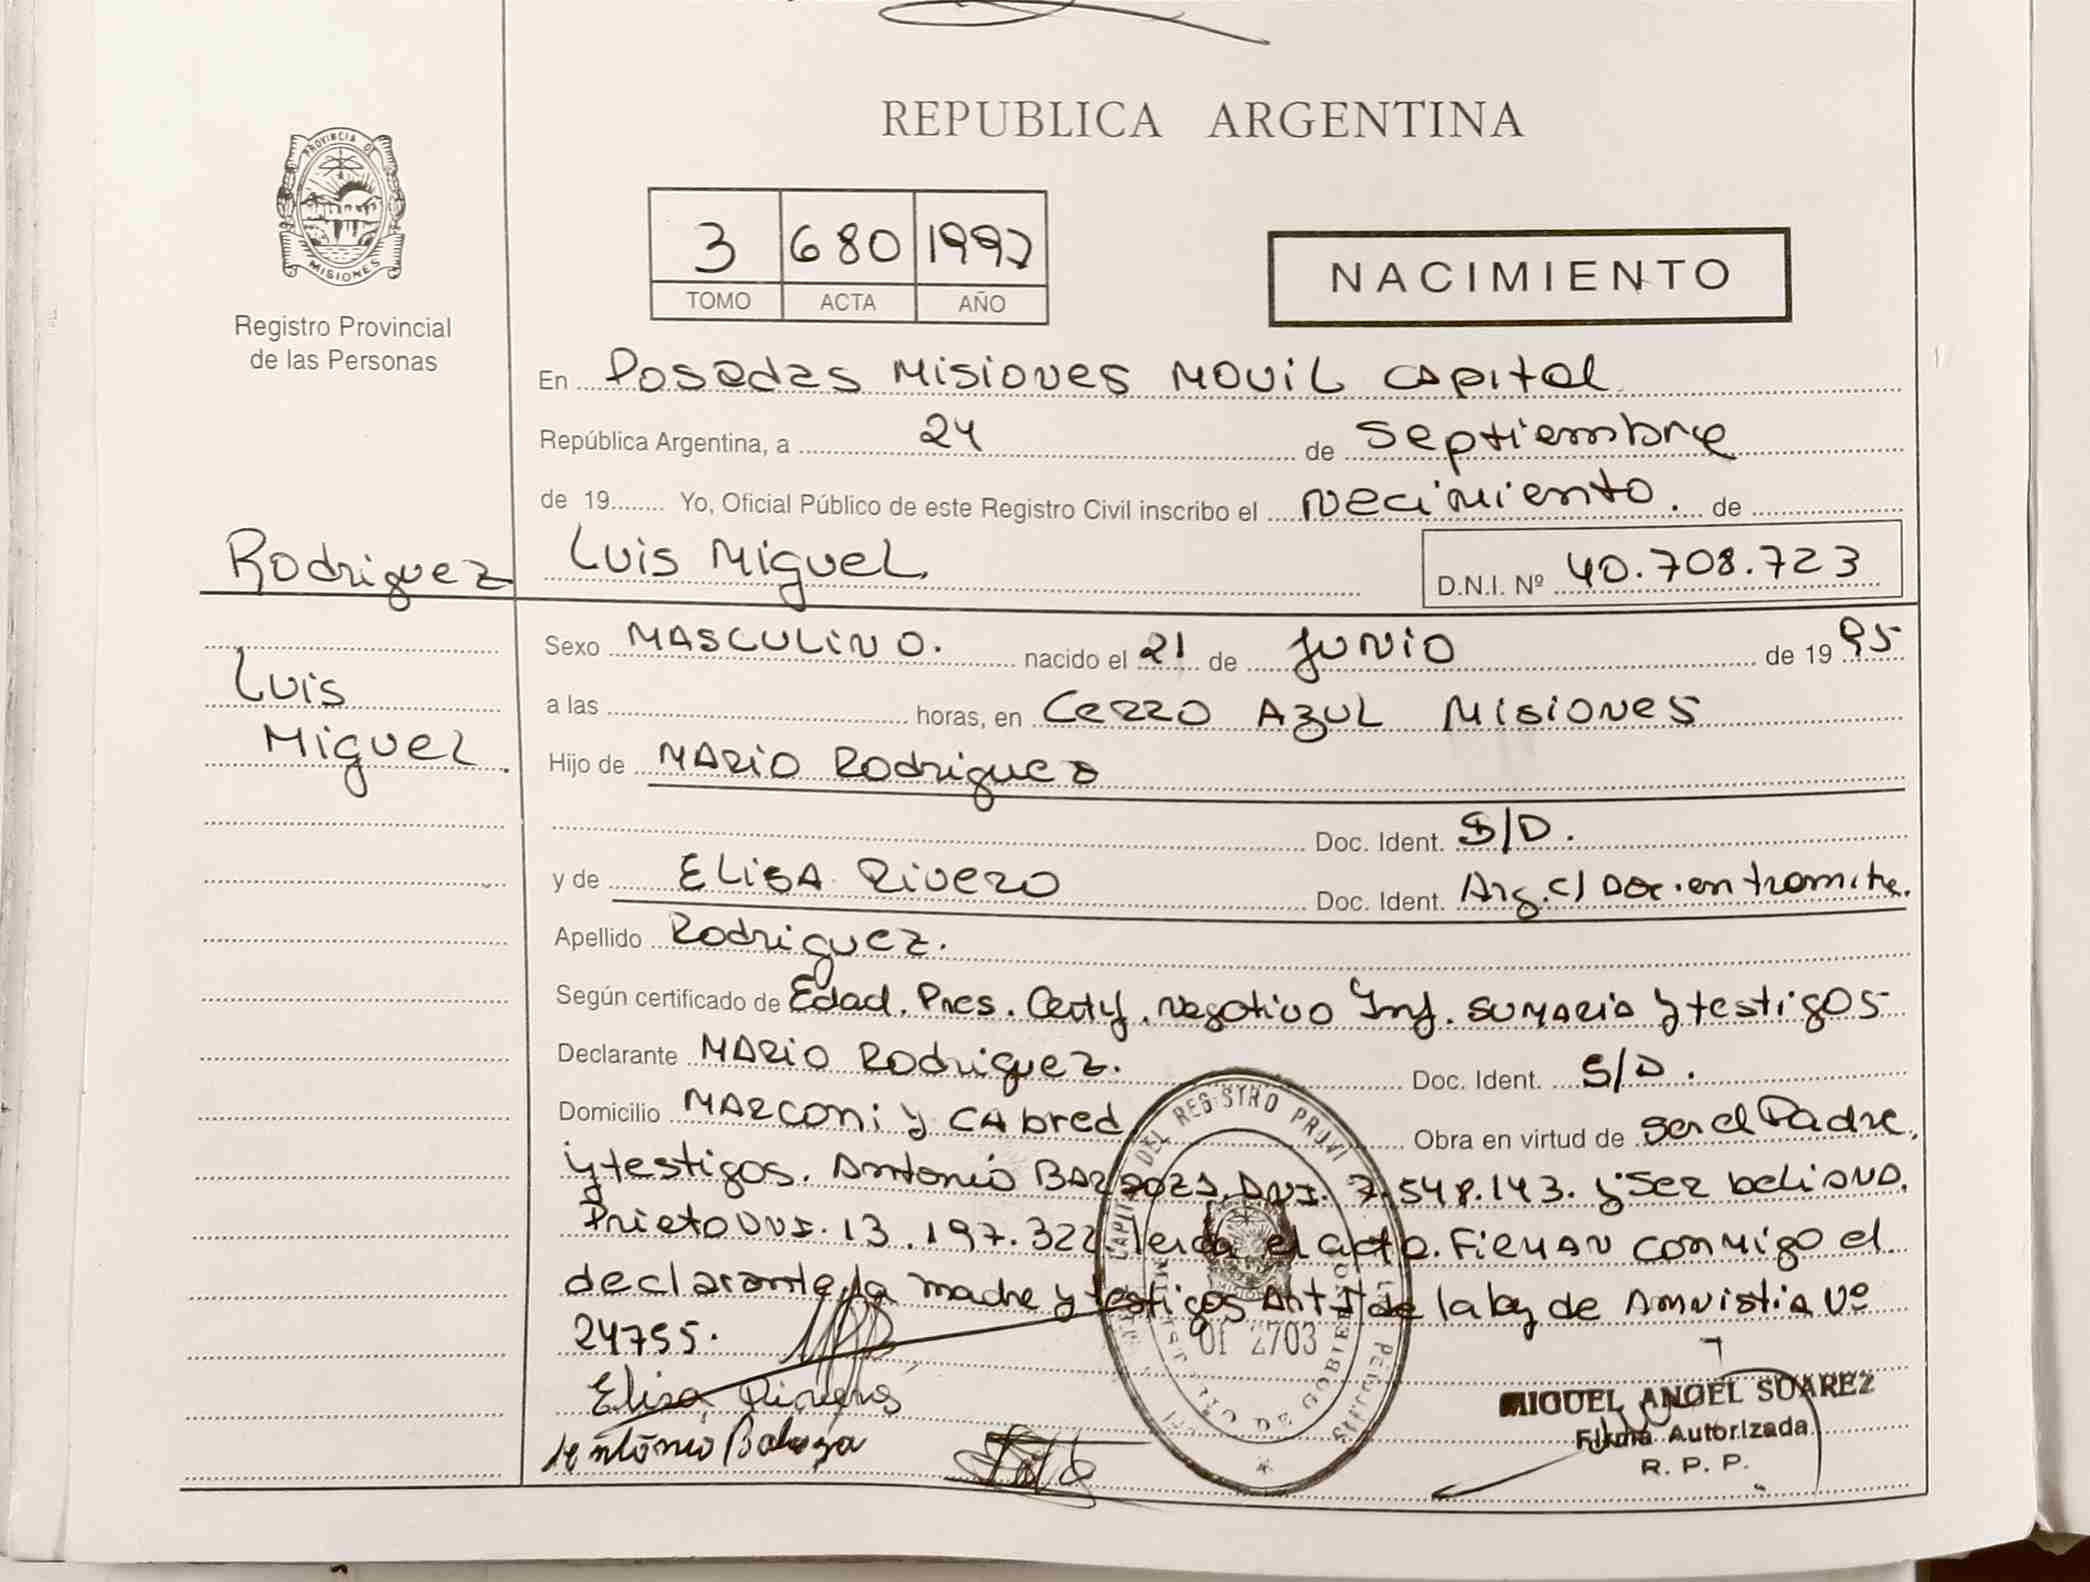 REPUBLICA ARGENTINA
PROVINCIA DE
MISIONES
Registro Provincial
de las Personas
3 680 1997
TOMO ACTA AÑO
NACIMIENTO
En Posadas Misiones Movil Capital
República Argentina, a 24 de Septiembre
de 19........ Yo, Oficial Público de este Registro Civil inscribo el Nacimiento. de
Rodriguez Luis Miguel. D.N.I. Nº 40.708.723
Luis
Miguel.
Sexo MASCULINO. nacido el 21 de JUNIO de 19 95
a las horas, en Cerro AZUL Misiones
Hijo de MARIO Rodriguez
Doc. Ident. S/D.
y de ELISA Rivero Doc. Ident. Arg. c/ Doc. en tramite.
Apellido Rodriguez.
Según certificado de Edad. Pres. Certf. Negativo Inf. SUMARIA y testigos
Declarante MARIO Rodriguez. Doc. Ident. S/D.
Domicilio MARCONI y CAbred Obra en virtud de ser el Padre.
y testigos. Antonio DNI. 7.548.143. y
Prieto DNI. 13.197.322 leida el acta. FIRMAN conmigo el
declarante, la madre y testigos de la ley de Amnistia Nº
24755.
Elisa
Antonio
Of 2703
MIGUEL ANGEL SUAREZ
Firma Autorizada
R. P. P.